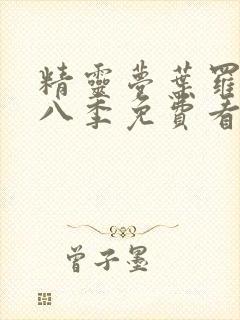 精靈夢葉羅
八季免費看
曾子墨